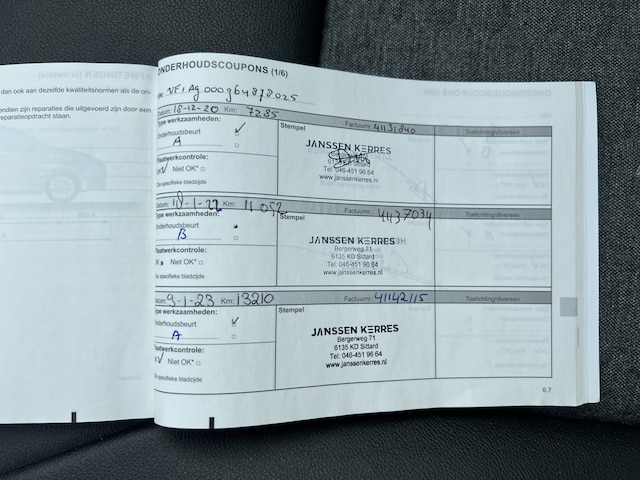 dan ook aan dezelfde kwaliteitsnormen als de on-
andien zijn reparaties die uitgevoerd zijn door een
reparatieopdracht staan.
ONDERHOUDSCOUPONS (1/6)
Datum: 18-12-20 Km: 7285 Factuurnr. 41131840 Toelichting/diversen
Type werkzaamheden: Stempel
Onderhoudsbeurt ✓
A
JANSSEN KERRES
6135 KD Sittard
Tel: 046-451 96 64
www.janssenkerres.nl
Plaatwerkcontrole:
OK ✓ Niet OK*
Zie specifieke bladzijde
Datum: 18-1-22 Km: 11052 Factuurnr. 41137034 Toelichting/diversen
Type werkzaamheden: Stempel
Onderhoudsbeurt
B
JANSSEN KERRES
Bergerweg 71
6135 KD Sittard
Tel: 046-451 96 64
www.janssenkerres.nl
Plaatwerkcontrole:
OK Niet OK*
Zie specifieke bladzijde
Datum: 9-1-23 Km: 13210 Factuurnr. 41142115 Toelichting/diversen
Type werkzaamheden: Stempel
Onderhoudsbeurt ✓
A
JANSSEN KERRES
Bergerweg 71
6135 KD Sittard
Tel: 046-451 96 64
www.janssenkerres.nl
Plaatwerkcontrole:
OK ✓ Niet OK*
Zie specifieke bladzijde
6.7